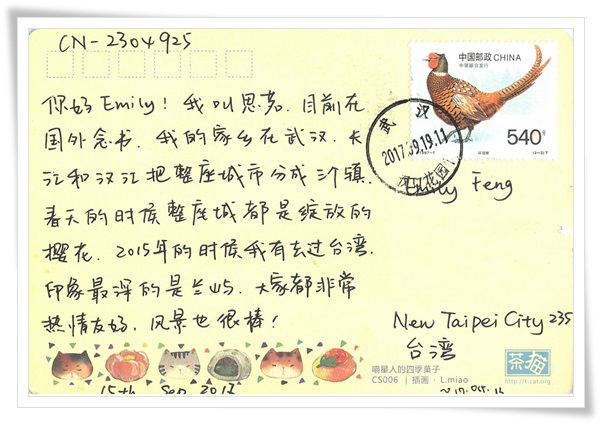 CN-2304925
中国邮政 CHINA
540分
武汉
2017.09.19.11
你好Emily！我叫思茗．目前在
国外念书．我的家乡在武汉．长
江和汉江把整座城市分成三个镇．
春天的时候整座城都是绽放的
樱花．2015年的时候我有去过台湾．
印象最深的是兰屿．大家都非常
热情友好．风景也很棒！
Emily Feng
New Taipei City 235
台湾
15th Sep 2017
喵星人的四季菓子
CS006 | 插画·L.miao
茶猫
http://t-cat.org